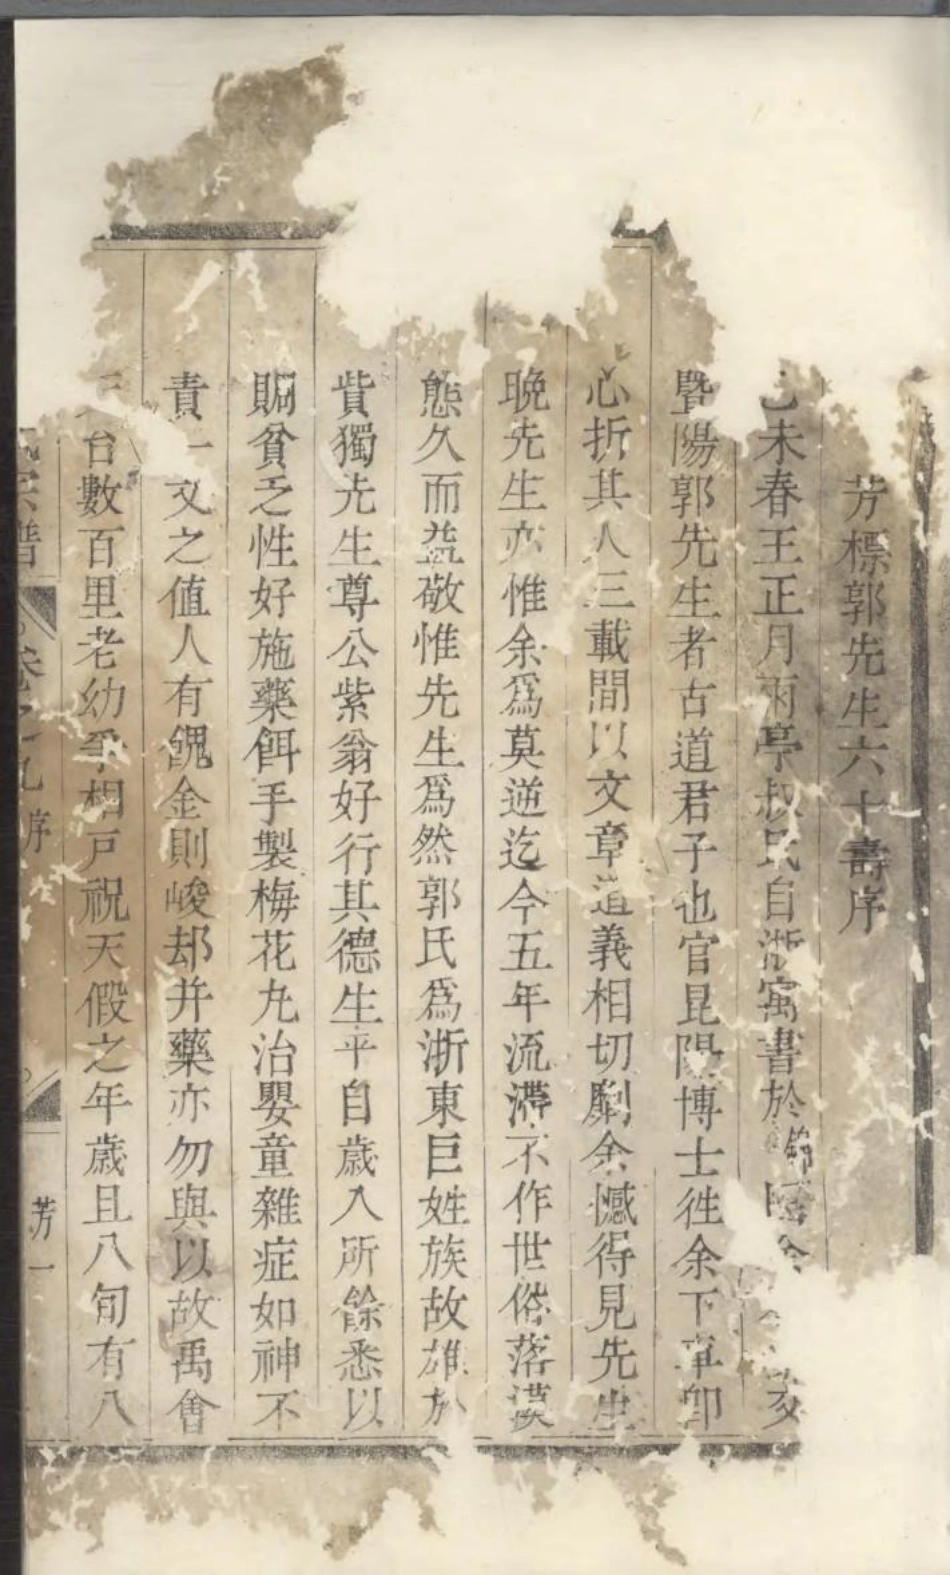 芳標郭先生六十壽序
未春王正月雨亭叔氏自浙寓書於錦
暨陽郭先生者古道君子也官昆陽博士徃余下車卽
心折其人三載間以文章道義相切劘余憾得見先生
晚先生亦惟余爲莫逆迄今五年流滯不作世俗落漠
態久而益敬惟先生爲然郭氏爲浙東巨姓族故雄於
貲獨先生尊公紫翁好行其德生平自歲入所餘悉以
賙貧乏性好施藥餌手製梅花丸治嬰童雜症如神不
責一文之值人有餽金則峻却并藥亦勿與以故禹會
台數百里老幼爭相戸祝天假之年歲且八旬有八
宗譜 卷之九 序 芳一